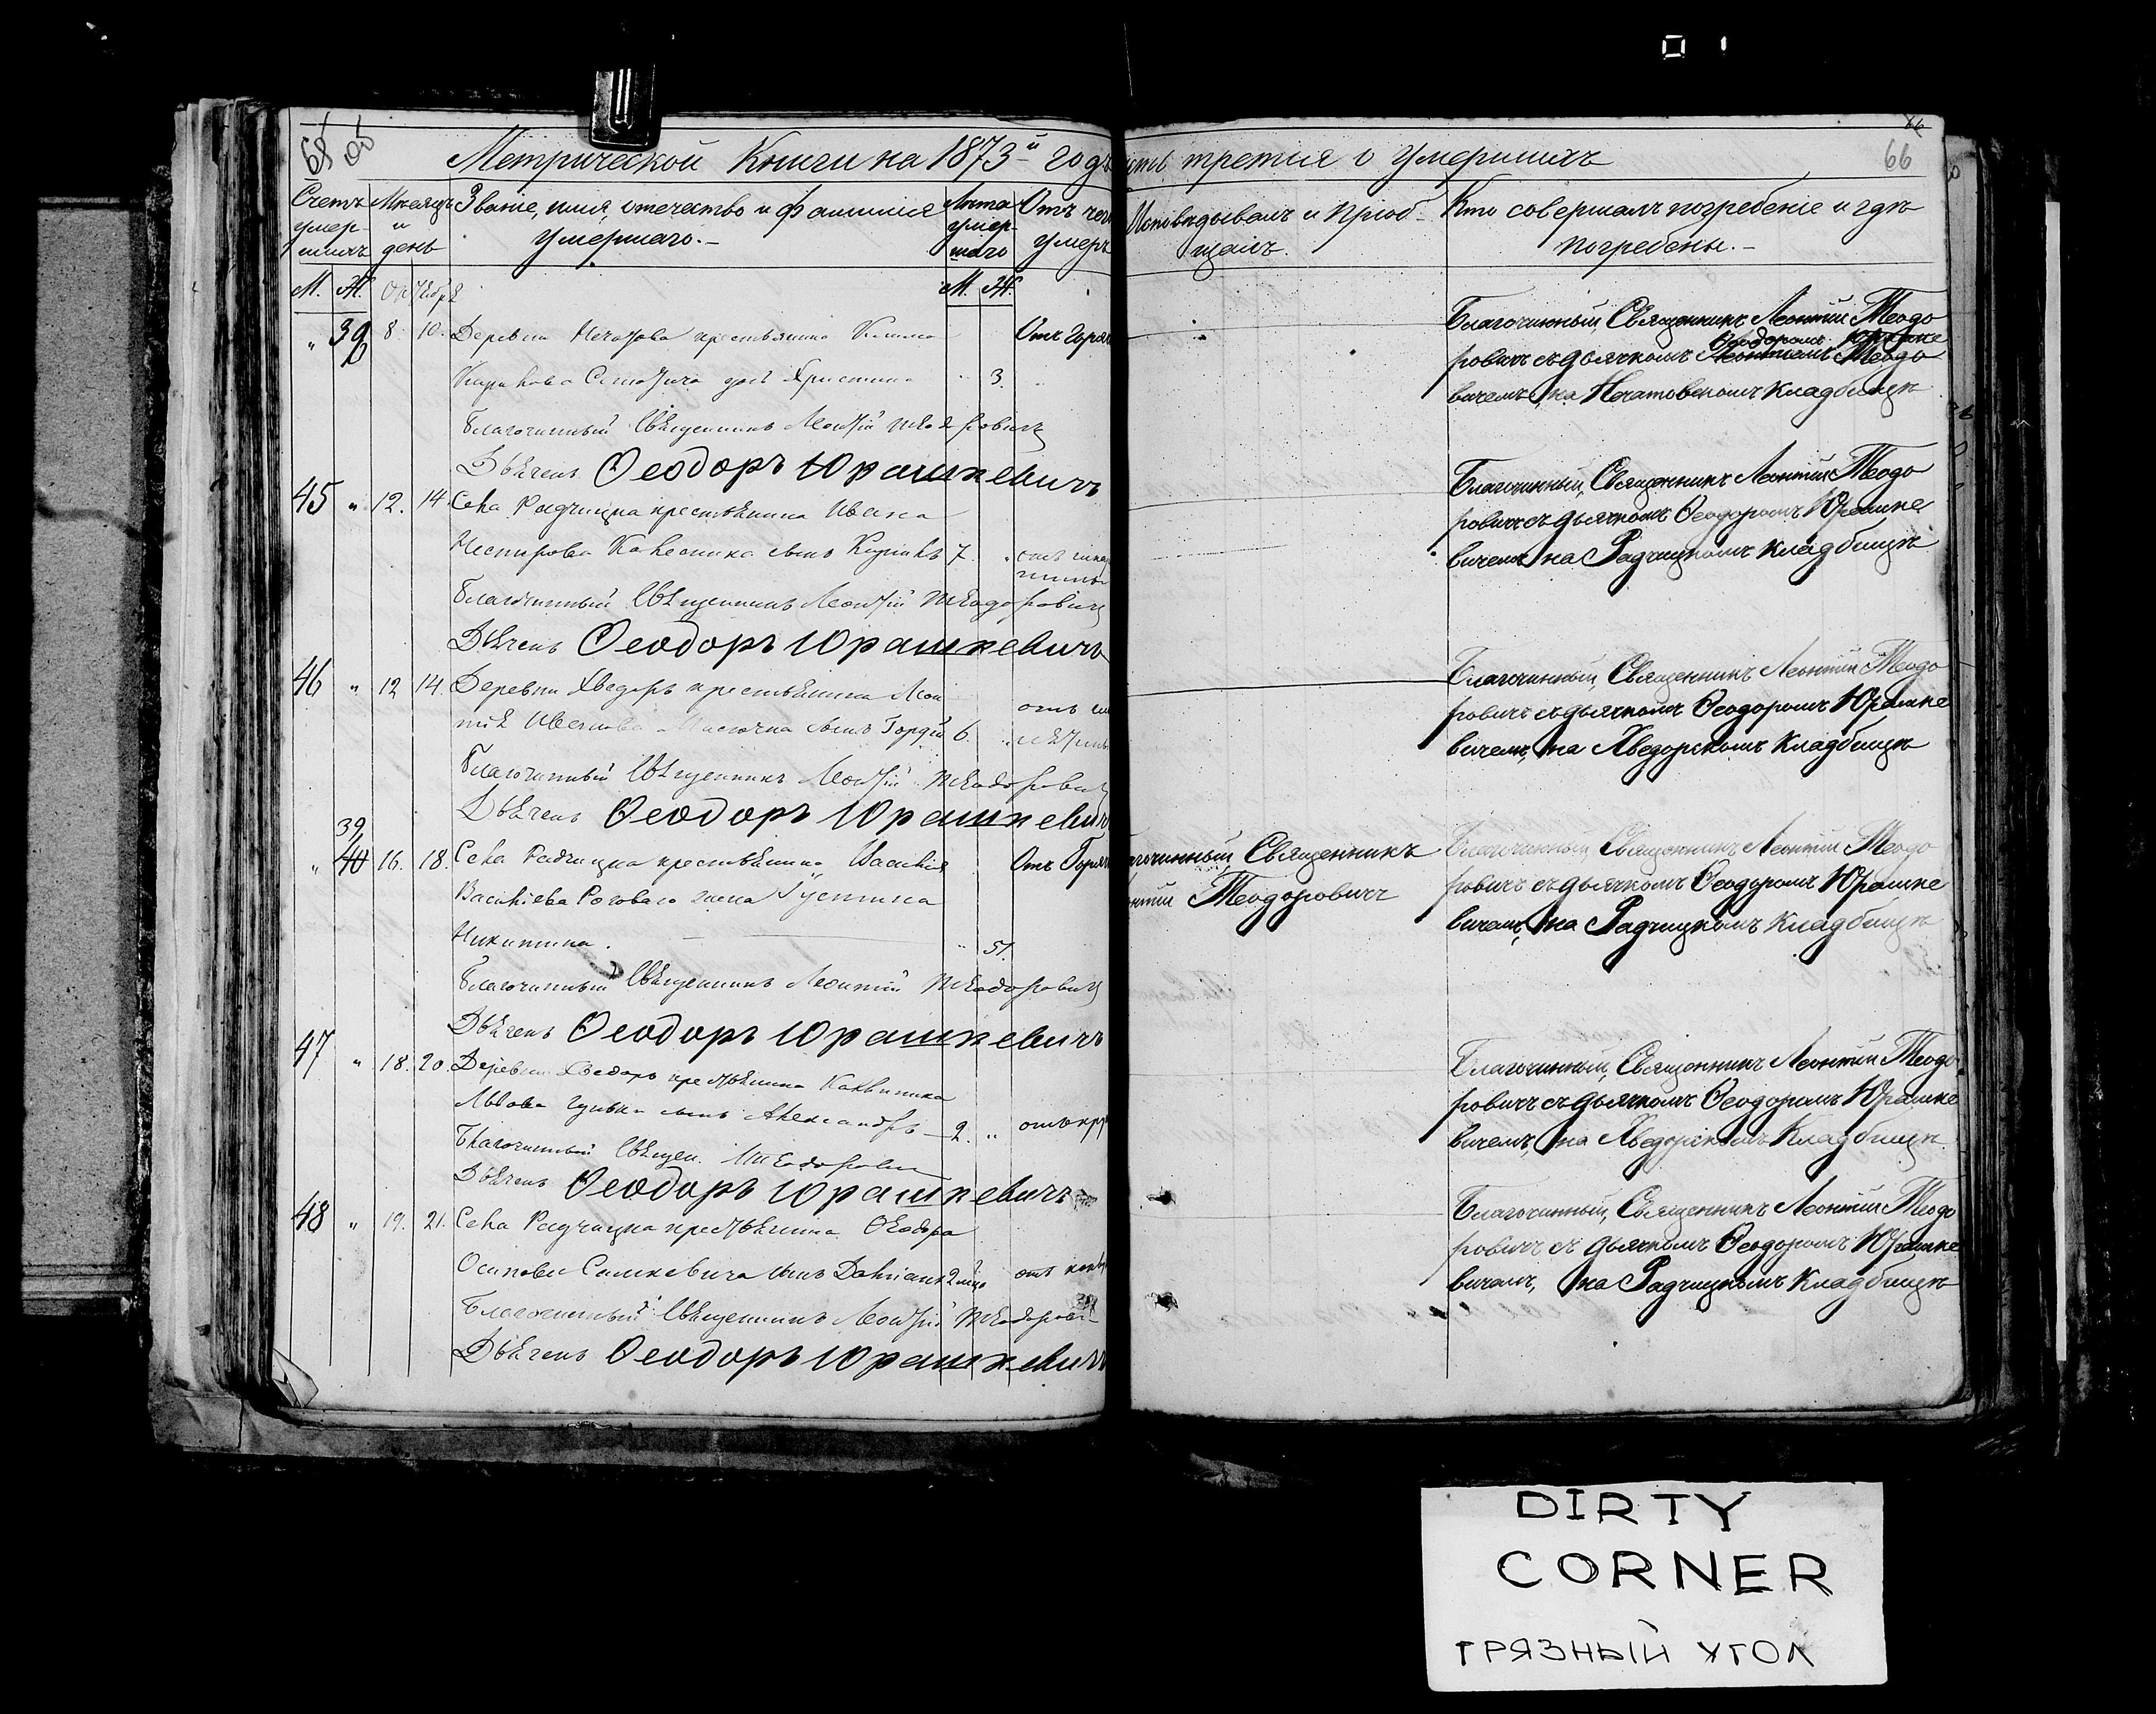 68
66
66
Метрической Книги на 1873-й годъ
часть третія о умершихъ
Счетъ умершихъ
Мѣсяцъ и день
Званіе, имя, отечество и фамилія умершаго.-
Лѣта умершаго
Отъ чего умеръ
Исповѣдывалъ и пріобщалъ.
Кто совершалъ погребеніе и гдѣ погребены.-
М. Ж. Октября М. Ж.
" 39 8. 10. Деревни Нечатова крестьянина Климa Отъ горя
дочь Христина " 3.
Благочинный Священникъ Леонтій Теодоровичъ
Дьячекъ Ѳеодоръ Юрашкевичъ
Благочинный Священникъ Леонтій Теодо
ровичъ съ дьячкомъ Ѳеодоромъ Юрашке
вичемъ, на Нечатовскомъ кладбищѣ
45 " 12. 14. Села Радчицка крестьянина Ивана
Нестерова Колесника сынъ 7. "
Благочинный Священникъ Леонтій Теодоровичъ
Дьячекъ Ѳеодоръ Юрашкевичъ
Благочинный, Священникъ Леонтій Теодо
ровичъ съ дьячкомъ Ѳеодоромъ Юрашке
вичемъ на Радчицкомъ кладбищѣ
46 " 12 14. Деревни Хведоръ крестьянина Леон
тія сынъ Гордій 6. "
Благочинный Священникъ Леонтій Теодоровичъ
Дьячекъ Ѳеодоръ Юрашкевичъ
Благочинный, Священникъ Леонтій Теодо
ровичъ съ дьячкомъ Ѳеодоромъ Юрашке
вичемъ, на Хведорскомъ кладбищѣ
39
" 40 16. 18. Села Радчицка крестьянина Василія Отъ Горя
Васильева Роговаго жена Густина
Никитина. " 51.
Благочинный Священникъ Леонтій Теодоровичъ
Дьячекъ Ѳеодоръ Юрашкевичъ
гочинный Священникъ
онтій Теодоровичъ
Благочинный, Священникъ Леонтій Теодо
ровичъ съ дьячкомъ Ѳеодоромъ Юрашке
вичемъ, на Радчицкомъ кладбищѣ
47 " 18. 20. Деревни Хведоръ крестьянина Калиника
Львова сынъ Александръ 2. "
Благочинный Священ. Л Теодорович
Дьячекъ Ѳеодоръ Юрашкевичъ
Благочинный, Священникъ Леонтій Теодо
ровичъ съ дьячкомъ Ѳеодоромъ Юрашке
вичемъ, на Хведорскомъ кладбищѣ
48 " 19. 21. Села Радчицка крестьянина Ѳеодора
Осипова Сынъ Даніилъ 2
Благочинный Священникъ Леонтій Теодоров
Дьячекъ Ѳеодоръ Юрашкевичъ
Благочинный, Священникъ Леонтій Теодо
ровичъ съ дьячкомъ Ѳеодоромъ Юрашке
вичемъ, на Радчицкомъ кладбищѣ
DIRTY
CORNER
ГРЯЗНЫЙ УГОЛ